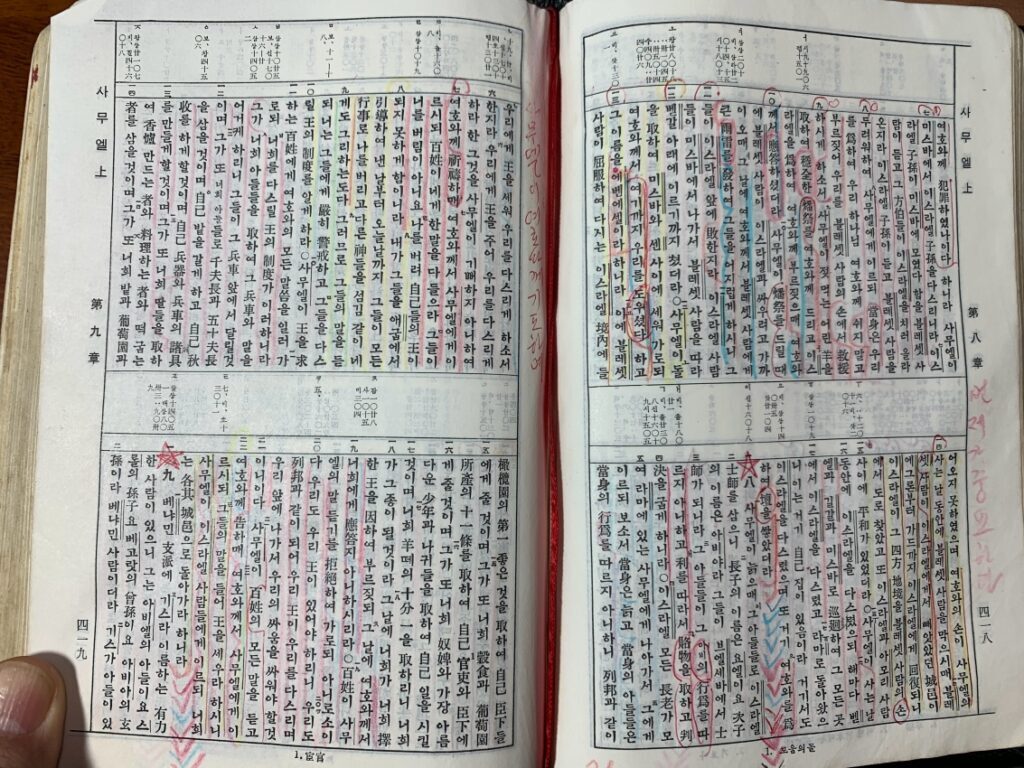 사무엘上
第八章
四一八
여호와께 犯罪하였나이다 하니라 사무엘이
미스바에서 이스라엘 子孫을 다스리니라 이스
라엘 子孫이 미스바에 모였다 함을 블레셋
사람이 듣고 그 方伯들이 이스라엘을 치러 올라
온지라 이스라엘 子孫이 듣고 블레셋 사람을
무려워하여 사무엘에게 이르되 當身은 우리
를 爲하여 우리 하나님 여호와께 쉬지 말고
부르짖어 우리를 블레셋 사람의 손에서 救援
하시게 하소서 사무엘이 젖먹는 어린 羊을
取하여 穩全한 燔祭를 여호와께 드리고 이스
라엘을 爲하여 여호와께 부르짖으매 여호와
께서 應答하셨더라 사무엘이 燔祭를 드릴 때
에 블레셋 사람이 이스라엘과 싸우려고 가까
이 오매 그 날에 여호와께서 블레셋 사람에게
큰 雨雷를 發하여 그들을 어지럽게 하시니 그
들이 이스라엘 앞에 敗한지라 이스라엘 사람
들이 미스바에서 나가서 블레셋 사람을 따라
벧갈 아래에 이르기까지 쳤더라○사무엘이 돌
을 取하여 미스바와 센 사이에 세워 가로되
여호와께서 여기까지 우리를 도우셨다 하고
그 이름을 에벤에셀이라 하니라 이에 블레셋
사람이 屈服하여 다시는 이스라엘 境內에 들
어오지 못하였으며 여호와의 손이 사무엘의
사는 날 동안에 블레셋 사람을 막으시매 블레
셋 사람이 이스라엘에게서 빼앗았던 城邑이
에그론부터 가드까지 이스라엘에게 回復되니
이스라엘이 그 四方 地境을 블레셋 사람의 손
에서 도로 찾았고 또 이스라엘과 아모리 사람
사이에 平和가 있었더라○사무엘이 사는 날
동안에 이스라엘을 다스렸으되 해마다 벧
엘과 길갈과 미스바로 巡廻하여 그 모든 곳
에서 이스라엘을 다스렸고 라마로 돌아왔으
니 이는 거기 自己 집이 있음이라 거기서도
이스라엘을 다스렸으며 또 거기 여호와를 爲
하여 壇을 쌓았더라
八 사무엘이 늙으매 그 아들들로 이스라엘
士師를 삼으니 長子의 이름은 요엘이요 次子
의 이름은 아비야라 그들이 브엘세바에서 士
師가 되니라 그 아들들이 그 아비의 行爲를 따
르지 아니하고 利를 따라서 賂物을 取하고 判
決을 굽게 하니라○이스라엘 모든 長老가 모
여 라마에 있는 사무엘에게 나아가서 그에게
이르되 보소서 當身은 늙고 當身의 아들들은
當身의 行爲를 따르지 아니하니 列邦과 같이
1. 도움의 돌
사무엘上
第九章
四一九
우리에게 王을 세워 우리를 다스리게 하소서
한지라 우리에게 王을 주어 우리를 다스리게
하라 한 그것을 사무엘이 기뻐하지 아니하여
여호와께 祈禱하매 여호와께서 사무엘에게 이
르시되 百姓이 네게 한 말을 다 들으라 그들이
너를 버림이 아니요 나를 버려 自己들의 王이
되지 못하게 함이니라 내가 그들을 애굽에서
引導하여 낸 날부터 오늘날까지 그들이 모든
行事로 나를 버리고 다른 神들을 섬김 같이 네
게도 그리하는도다 그러므로 그들의 말을 듣
되 너는 그들에게 嚴히 警戒하고 그들을 다스
릴 王의 制度를 알게 하라○사무엘이 王을 求
하는 百姓에게 여호와의 모든 말씀을 일러 가
로되 너희를 다스릴 王의 制度가 이러하니라
그가 너희 아들들을 取하여 그 兵車와 말을
어거케 하리니 그들이 그 兵車 앞에서 달릴 것
이며 그가 또 너희 아들들로 千夫長과 五十夫長
을 삼을 것이며 自己 밭을 갈게 하고 自己 秋
收를 하게 할 것이며 自己 兵器와 兵車의 諸具
를 만들게 할 것이며 그가 또 너희 딸들을 取하
여 香爐 만드는 者와 料理하는 者와 떡 굽는
者를 삼을 것이며 그가 또 너희 밭과 葡萄園과
橄欖園의 第一 좋은 것을 取하여 自己 臣下들
에게 줄 것이며 그가 또 너희 穀食과 葡萄園
所産의 十一條를 取하여 自己 官吏와 臣下에
게 줄 것이며 그가 또 너희 奴婢와 가장 아름
다운 少年과 나귀들을 取하여 自己 일을 시킬
것이며 너희 羊떼의 十分一을 取하리니 너희
가 그 종이 될 것이라 그 날에 너희가 너희 擇
한 王을 因하여 부르짖되 그 날에 여호와께서
너희에게 應答지 아니하시리라○百姓이 사무
엘의 말 듣기를 拒絶하여 가로되 아니로소이
다 우리도 우리 王이 있어야 하리니 우리도
列邦과 같이 되어 우리 王이 우리를 다스리며
우리 앞에 나가서 우리의 싸움을 싸워야 할 것
이니이다 사무엘이 百姓의 모든 말을 듣고
여호와께 告하매 여호와께서 사무엘에게 이
르시되 그들의 말을 들어 王을 세우라 하시니
사무엘이 이스라엘 사람들에게 이르되 너희
는 各其 城邑으로 돌아가라 하니라
九 베냐민 支派에 기스라 이름하는 有力
한 사람이 있으니 그는 아비엘의 아들이요 스
롤의 孫子요 베고랏의 曾孫이요 아비아의 玄
孫이라 베냐민 사람이더라 기스가 아들이 있
1. 宦官